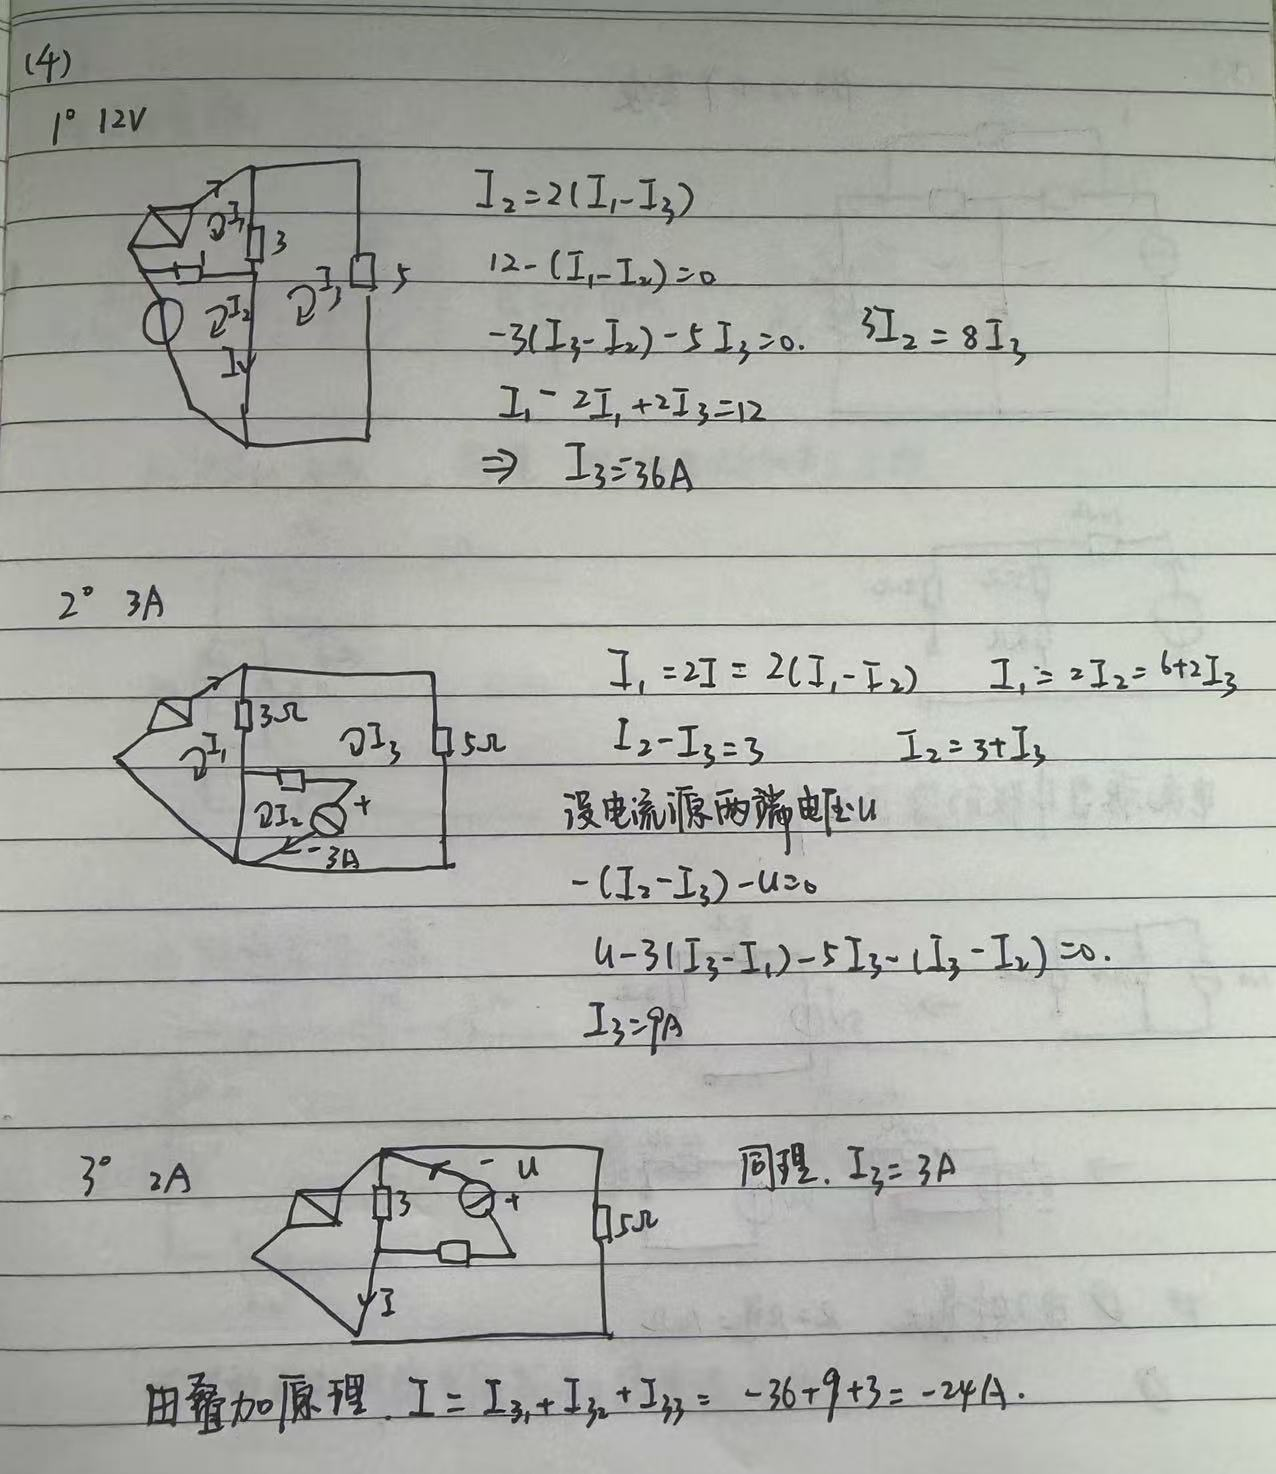 (4)
1° 12V
I₁
3
I₃
5
I₂
I
I₂=2(I₁-I₃)
12-(I₁-I₂)=0
-3(I₃-I₂)-5I₃=0. 3I₂=8I₃
I₁-2I₁+2I₃=12
⇒ I₃=-36A
2° 3A
3Ω
I₁
I₃
5Ω
I₂
+
-
3A
I₁=2I=2(I₁-I₂) I₁=2I₂=6+2I₃
I₂-I₃=3 I₂=3+I₃
设电流源两端电压u
-(I₂-I₃)-u=0
u-3(I₃-I₁)-5I₃-(I₃-I₂)=0.
I₃=9A
3° 2A
- u
3
+
5Ω
I
同理. I₃=3A
由叠加原理. I=I₃₁+I₃₂+I₃₃=-36+9+3=-24A.